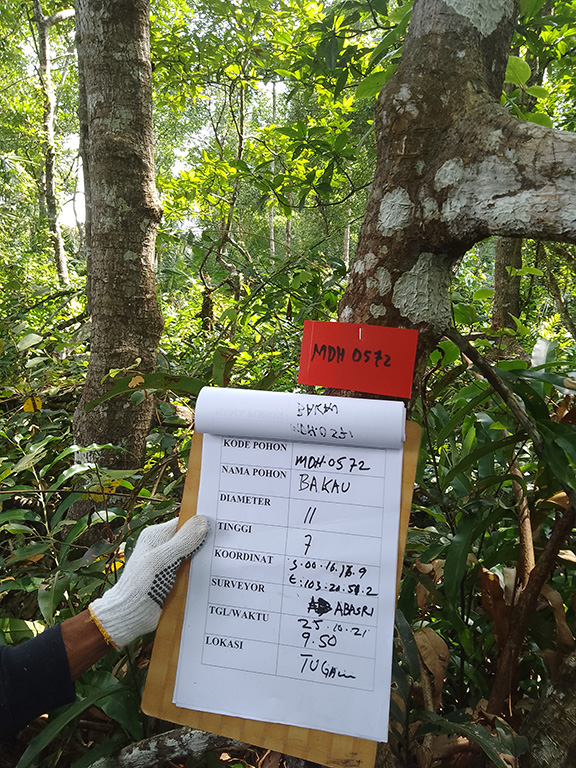 MDH 0572
BAKAU
KODE POHON MDH.0572
NAMA POHON BAKAU
DIAMETER 11
TINGGI 7
KOORDINAT S.00.16.18.9
E:103.20.50.2
SURVEYOR ABASRI
TGL/WAKTU 25.10.21
9.50
LOKASI